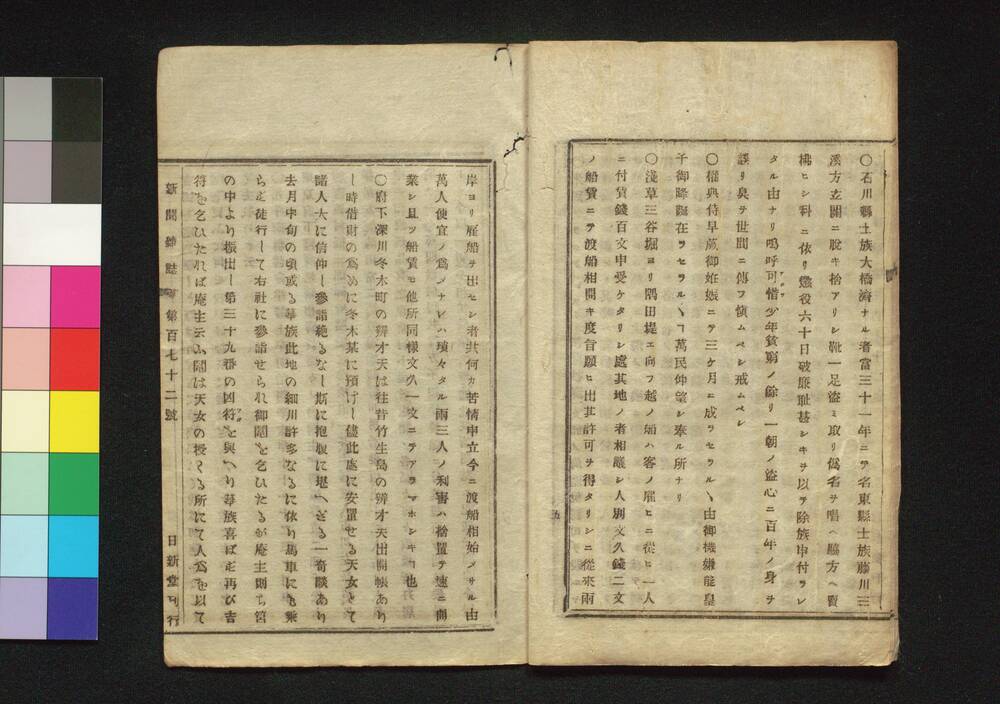 〇石川縣士族大橋濟ナル者當三十一年ニテ名東縣士族藤川三
溪方玄關ニ脫キ捨アリシ靴一足盜ミ取リ僞名ヲ唱ヘ脇方ヘ賣
拂ヒシ科ニ依リ懲役六十日破廉耻甚シキヲ以テ除族申付ラレ
タル由ナリ嗚呼可惜少年貧窮ノ餘リ一朝ノ盜心ニ百年ノ身ヲ
誤リ臭ヲ世間ニ傳フ愼ムベシ戒ムベシ
〇權典侍早蕨御姙娠ニテ三ケ月ニ成ラセラルヽ由御機嫌能皇
子御降誕在ラセラルヽヿ萬民仰望シ奉ル所ナリ
〇淺草三谷堀ヨリ隅田堤エ向フ越ノ船ハ客ノ雇ヒニ從ヒ一人
ニ付賃錢百文申受ケタリシ處其地ノ者相議シ人別文久錢二文
ノ船賃ニテ渡船相開キ度旨願ヒ出其許可ヲ得タリシニ從來兩
五
岸ヨリ雇船ヲ出セシ者共何カ苦情申立今ニ渡船相始メサル由
萬人便宜ノ爲メナレハ瑣々タル兩三人ノ利害ハ捨置テ速ニ開
業シ且ツ船賃モ他所同樣文久一文ニテアラマホシキヿ也
〇府下深川冬木町の辨才天は往昔竹生島の辨才天出開帳あり
し時借財の爲めに冬木某に預けし儘此處に安置せる天女とて
諸人大に信仰し參詣絶るなし斯に抱腹に堪へざる一奇談あり
去月中旬の頃或る華族此地の細川許多なるに依り馬車にも乘
らず徒行して右社に參詣せられ御䰗を乞ひたるが庵主則ち宮
の中より振出し第三十九番の凶符を與へり華族喜ばず再び吉
符を乞ひたれば庵主云ふ䰗は天女の授くる所にて人爲を以て
新聞雜誌 第百七十二號
日新堂刊行